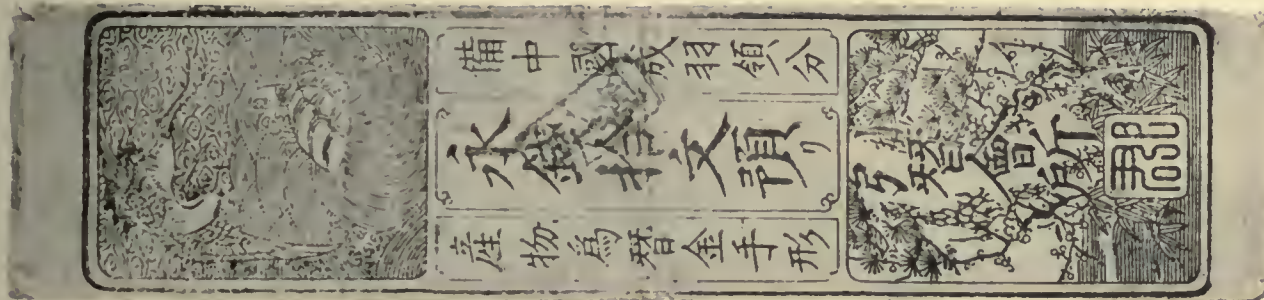 備中國成羽領分
永錢拾文預り
産物爲替金手形
引替會所